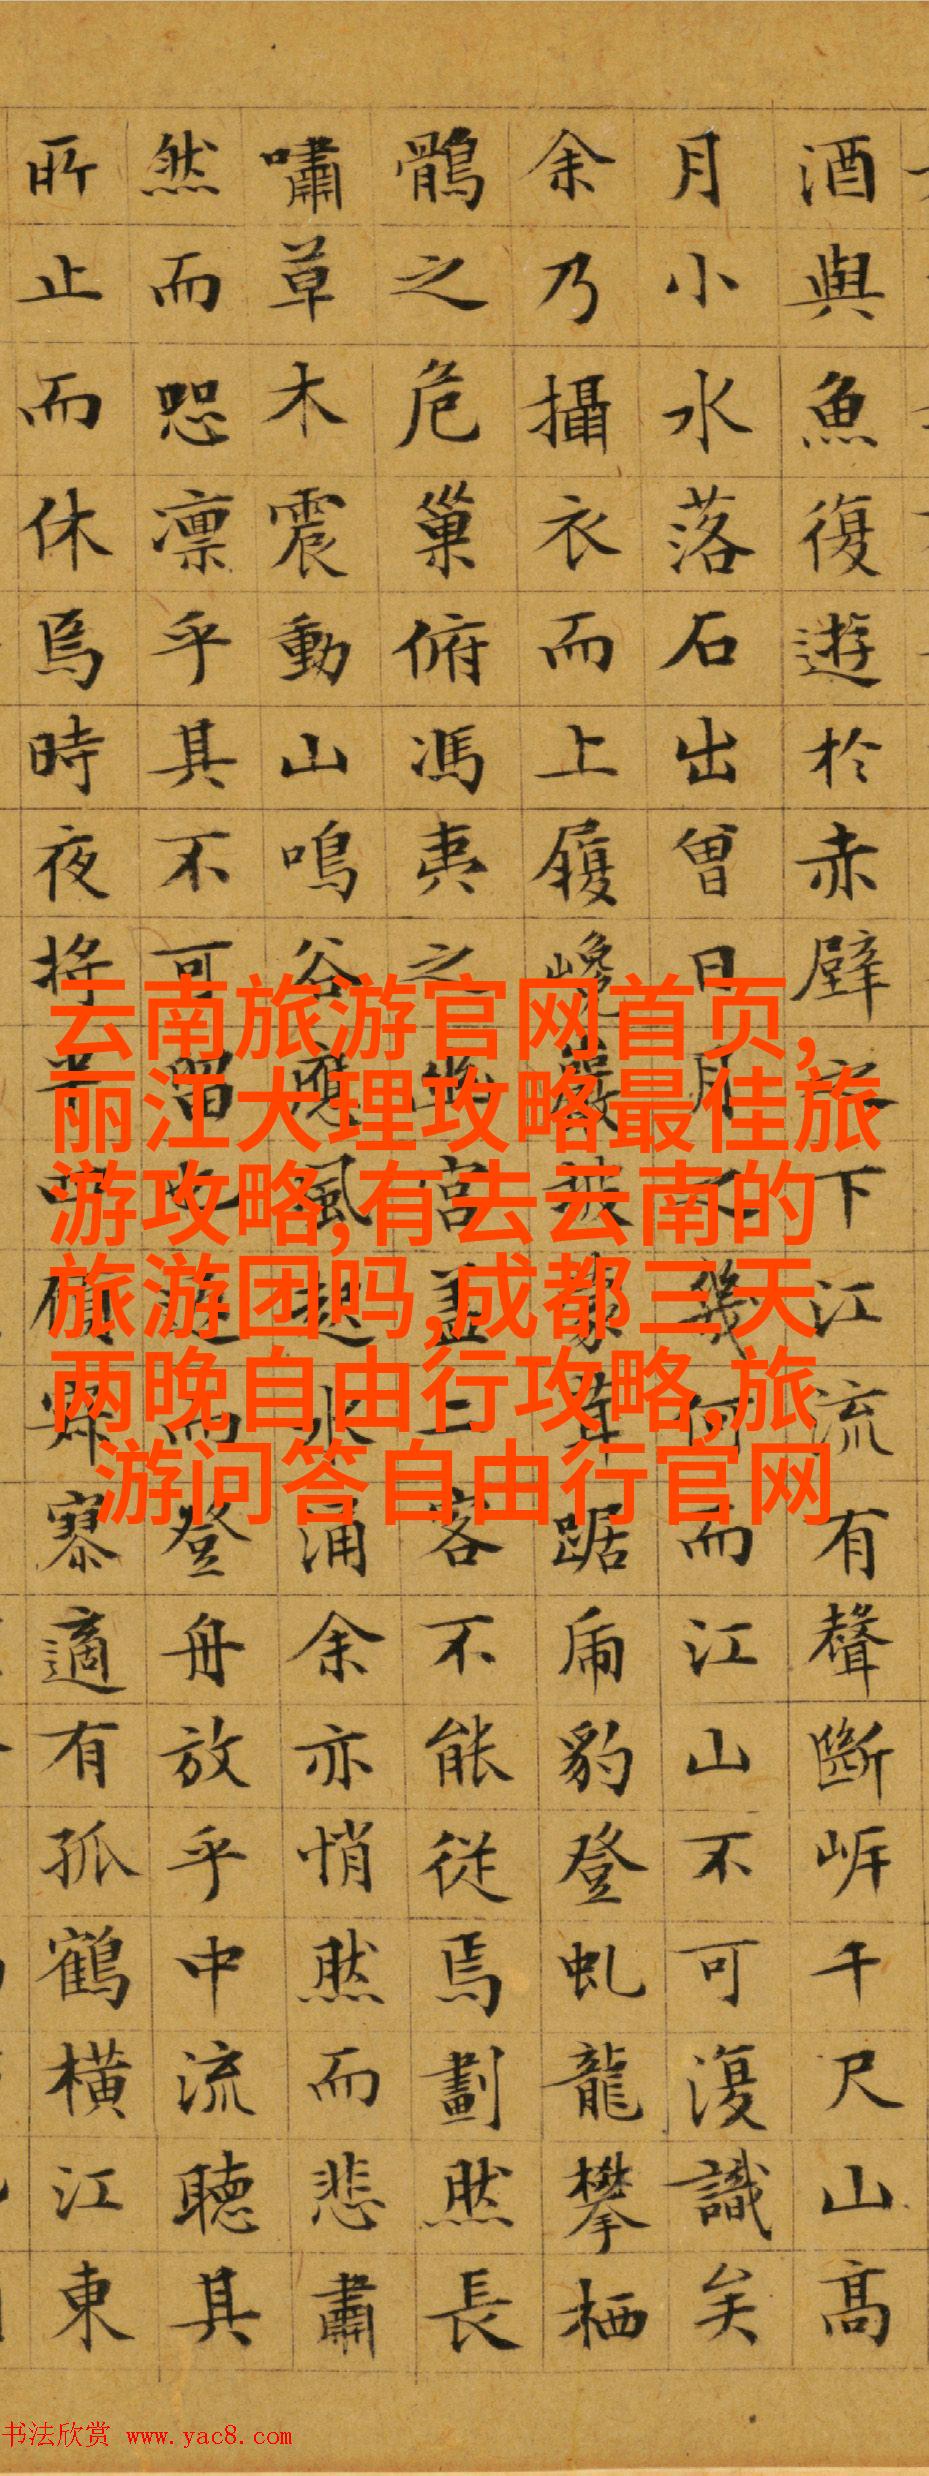 酒與魚復遊於赤壁之下江流有聲斷岸千尺山高
月小水落石出曾日月之幾何而江山不可復識矣
余乃攝衣而上履巉巖披蒙茸踞虎豹登虬龍攀栖
鶻之危巢俯馮夷之幽宮蓋二客不能從焉劃然長
嘯草木震動山鳴谷應風起水涌余亦悄然而悲肅
然而恐凛乎其不可留也返而登舟放乎中流聽其
所止而休焉時夜將半四顧寂寥適有孤鶴橫江東
云南旅游官网首页,
丽江大理攻略最佳旅
游攻略,有去云南的
旅游团吗,成都三天
两晚自由行攻略,旅
游问答自由行官网
书法欣赏 www.yac8.com